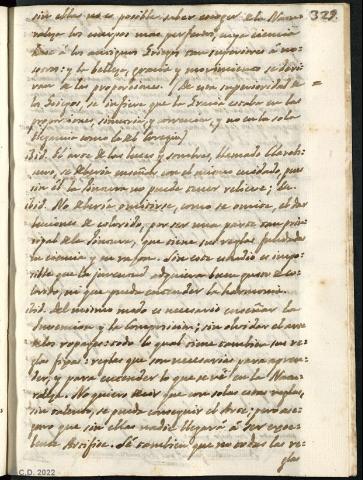 329.
sin ellas no es posible saber escoger de la Natu-
raleza los cuerpos mas perfectos, cuya ciencia
hizo á los antiguos Griegos tan superiores á no-
sotros: y la belleza, gracia y movimiento se deri-
van de las proporciones. (De esta superioridad de
los Griegos, se infiere que la Gracia estaba en las
proporciones, simetría y correccion, y no en la sola
elegancia como la del Coregio)
ibid. El arte de las luces y sombras, llamado Claroobs-
curo, se debería enseñar con el mismo cuidado, pues
sin él la Pintura no puede tener relieve; &c.
ibid. No debería omitirse, como se omite, el dar
lecciones de colorido, por ser una parte tan prin-
cipal de la Pintura, que tiene sus reglas fundadas
en ciencia y en razon. Sin este estudio es impo-
sible que la juventud adquiera buen gusto de co-
lorido, ni que pueda entender la harmonía.
ibid. Del mismo modo es necesario enseñar la
Invencion y la Composicion; sin olvidar el arte
de los ropages: todo lo qual tiene tambien sus re-
glas fijas: reglas que son necesarias para apren-
der, y para entender lo que se vé en la Natu-
raleza. No quiero decir que con solas estas reglas,
sin talento, se puede conseguir el Arte; pero ase-
guro que sin ellas nadie llegará á ser exce-
lente Artifice. Sé tambien que no todas las re-
glas
C.D. 2022